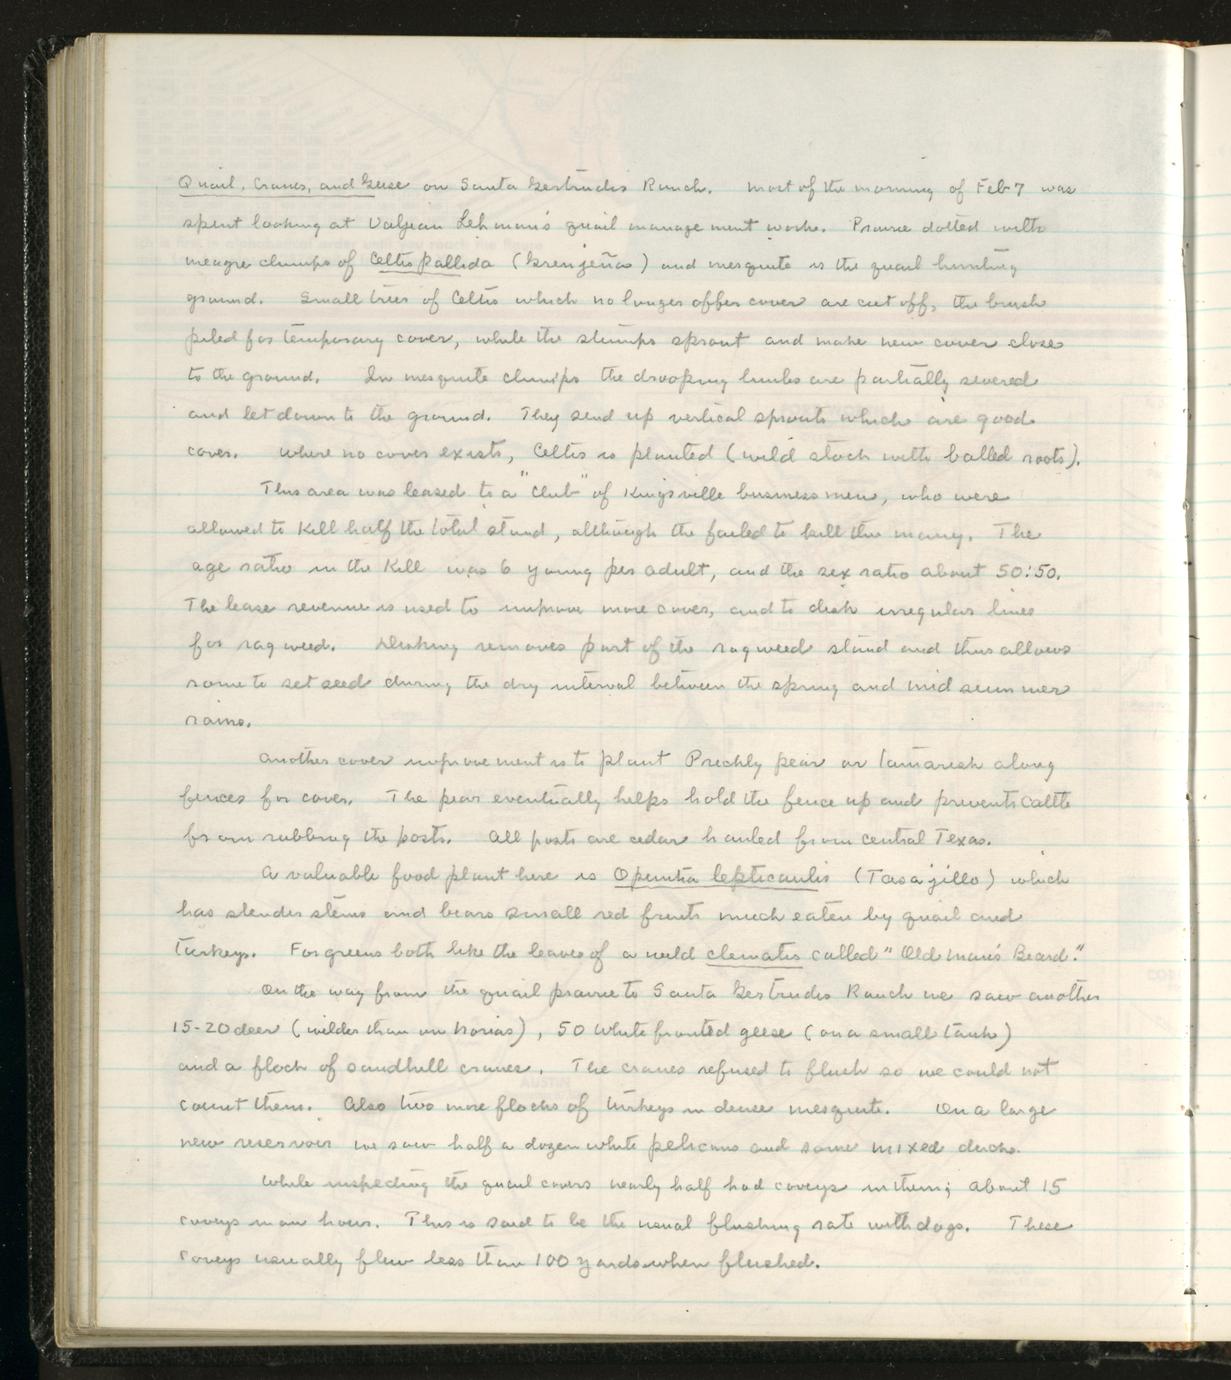 Quail, Cranes, and Geese on Santa Gertrudis Ranch. Most of the morning of Feb 7 was
spent looking at Valgean Lehman's quail management work. Prairie dotted with
meagre clumps of Celtis pallida (Grenjeña) and mesquite is the quail hunting
ground. Small trees of Celtis which no longer offer cover are cut off, the brush
piled for temporary cover, while the stumps sprout and make new cover close
to the ground. In mesquite clumps the drooping limbs are partially severed
and let down to the ground. They send up vertical sprouts which are good
cover. Where no cover exists, Celtis is planted (wild stock with balled roots).
This area was leased to a "club" of Kingsville business men, who were
allowed to kill half the total stand, although the failed to kill this many. The
age ratio in the kill was 6 young per adult, and the sex ratio about 50:50.
The lease revenue is used to improve more cover, and to disk irregular lines
for ragweed. Disking removes part of the ragweed stand and thus allows
some to set seed during the dry interval between the spring and midsummer
rains.
Another cover improvement is to plant Prickly pear or tamarisk along
fences for cover. The pear eventually helps hold the fence up and prevents cattle
from rubbing the posts. All posts are cedar hauled from central Texas.
A valuable food plant here is Opuntia lepticaulis (Tasajillo) which
has slender stems and bears small red fruits much eaten by quail and
turkeys. For greens both like the leaves of a wild clematis called "Old man's Beard."
On the way from the quail prairie to Santa Gertrudis Ranch we saw another
15-20 deer (wilder than on Norias), 50 white fronted geese (on a small tank)
and a flock of sandhill cranes. The cranes refused to flush so we could not
count them. Also two more flocks of turkeys in dense mesquite. On a large
new reservoir we saw half a dozen white pelicans and some mixed ducks.
While inspecting the quail covers nearly half had coveys in them; about 15
coveys in an hour. This is said to be the usual flushing rate with dogs. These
coveys usually flew less than 100 yards when flushed.